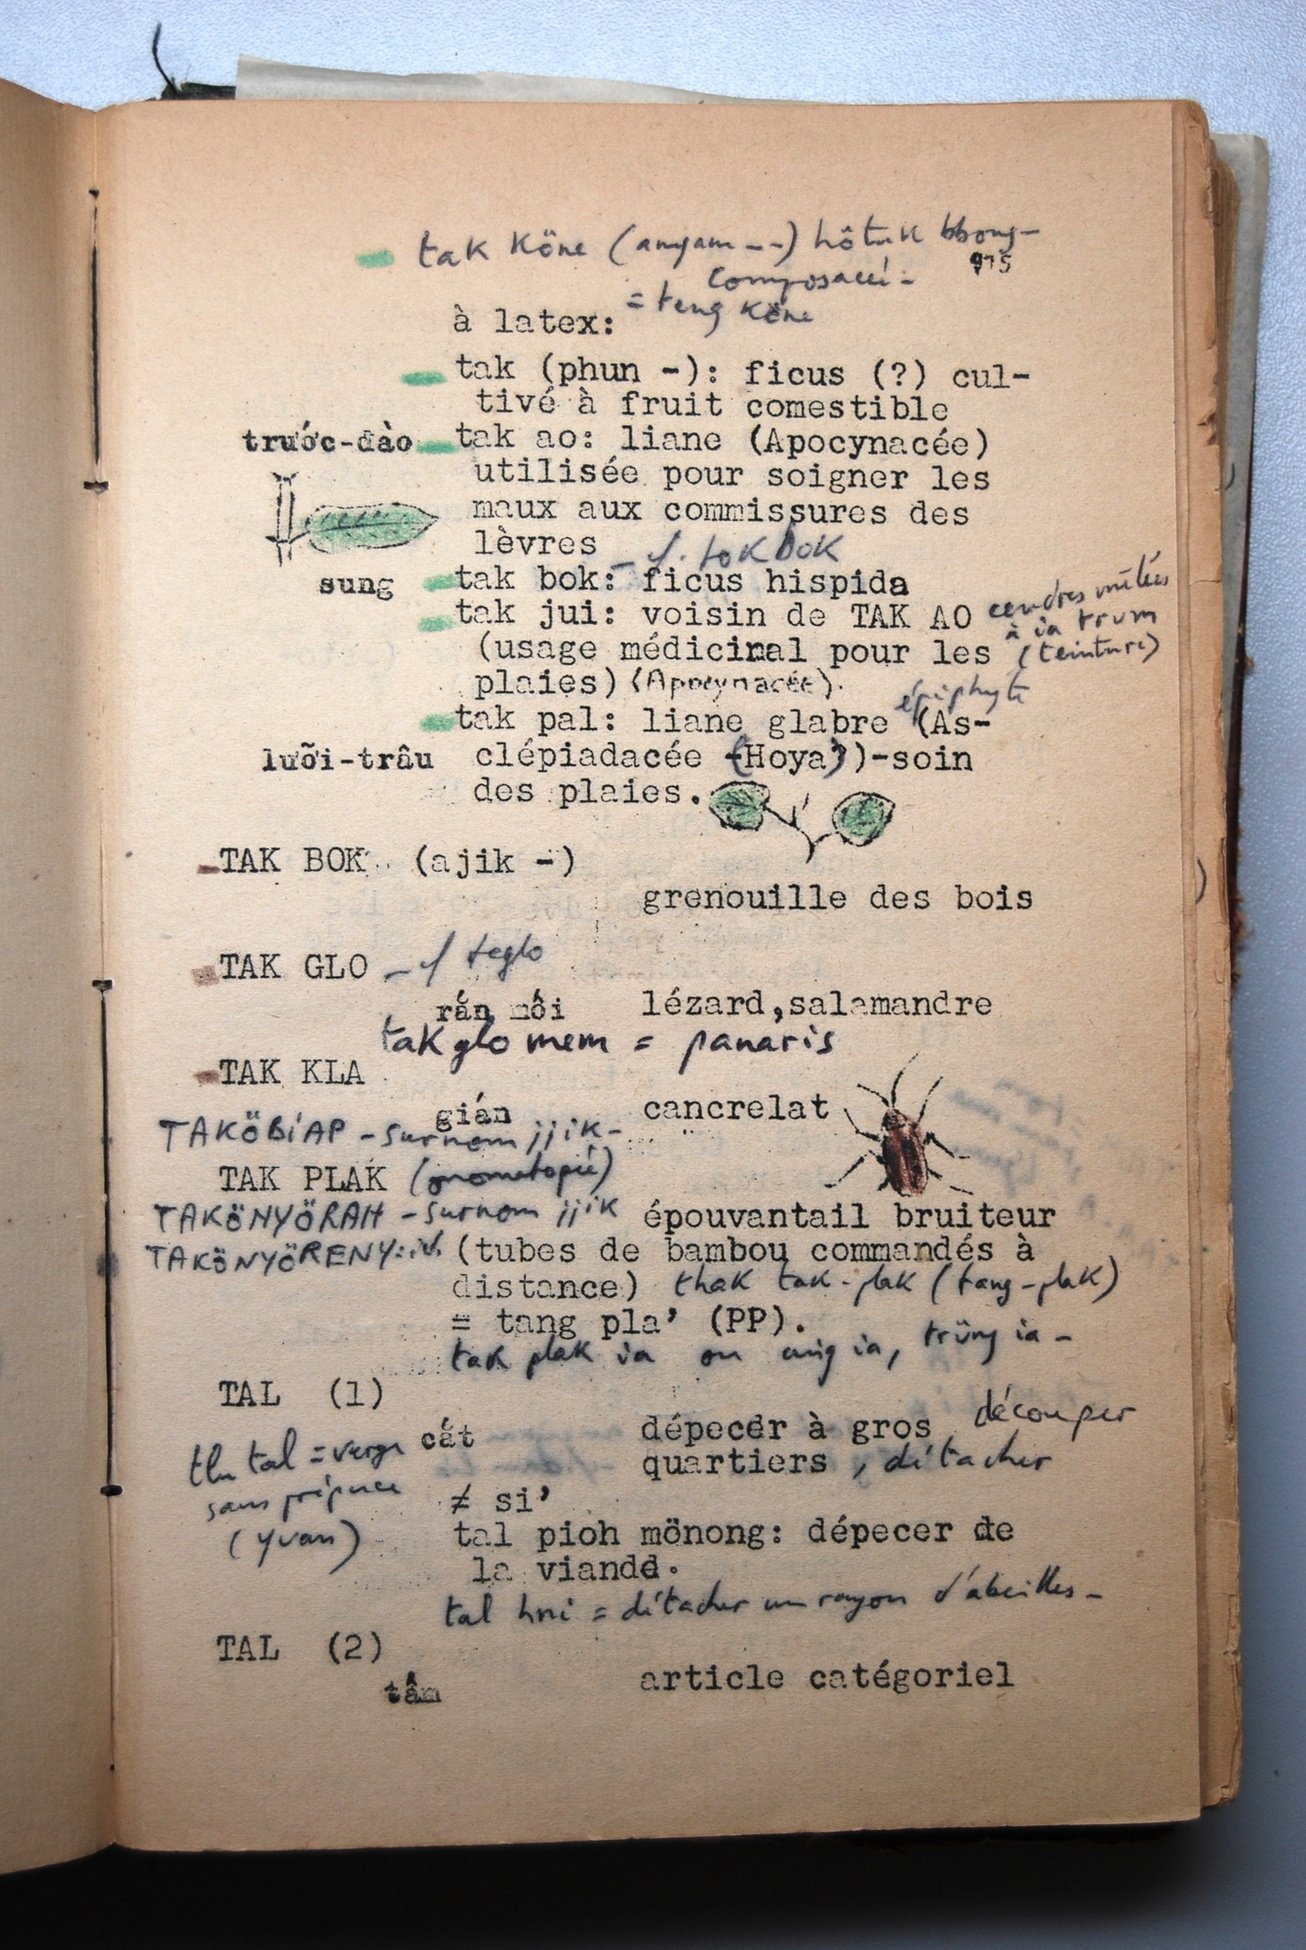 tak Köne (anyam --) hôtak bbong-
975
Composacéi -
= teng Köne
à latex:
tak (phun -): ficus (?) cul-
tivé à fruit comestible
trước-đào tak ao: liane (Apocynacée)
utilisée pour soigner les
maux aux commissures des
lèvres
cf. tok bok
sung tak bok: ficus hispida
tak jui: voisin de TAK AO cendres mêlées
à ia trum
(usage médicinal pour les (teinture)
plaies) (Apocynacée).
épiphyte
tak pal: liane glabre (As-
lưỡi-trâu clépiadacée (Hoya))-soin
des plaies.
TAK BOK (ajik -)
grenouille des bois
TAK GLO - cf teglo
rắn mối lézard, salamandre
tak glo mem = panaris
TAK KLA
gián cancrelat
TAKÖBIAP - surnom jjik-
TAK PLAK (onomatopée)
TAKÖNYÖRAH - surnom jjik épouvantail bruiteur
TAKÖNYÖRENY: id. (tubes de bambou commandés à
distance) thak tak-plak (tang-plak)
= tang pla' (PP).
tak plak ia ou ia, trŭng ia -
TAL (1)
cắt dépecer à gros découper
quartiers, détacher
tlu tal = verge
sans prépuce
(yuan)
≠ si'
tal pioh mönong: dépecer de
la viande.
tal hni = détacher un rayon d'abeilles -
TAL (2)
tấm article catégoriel